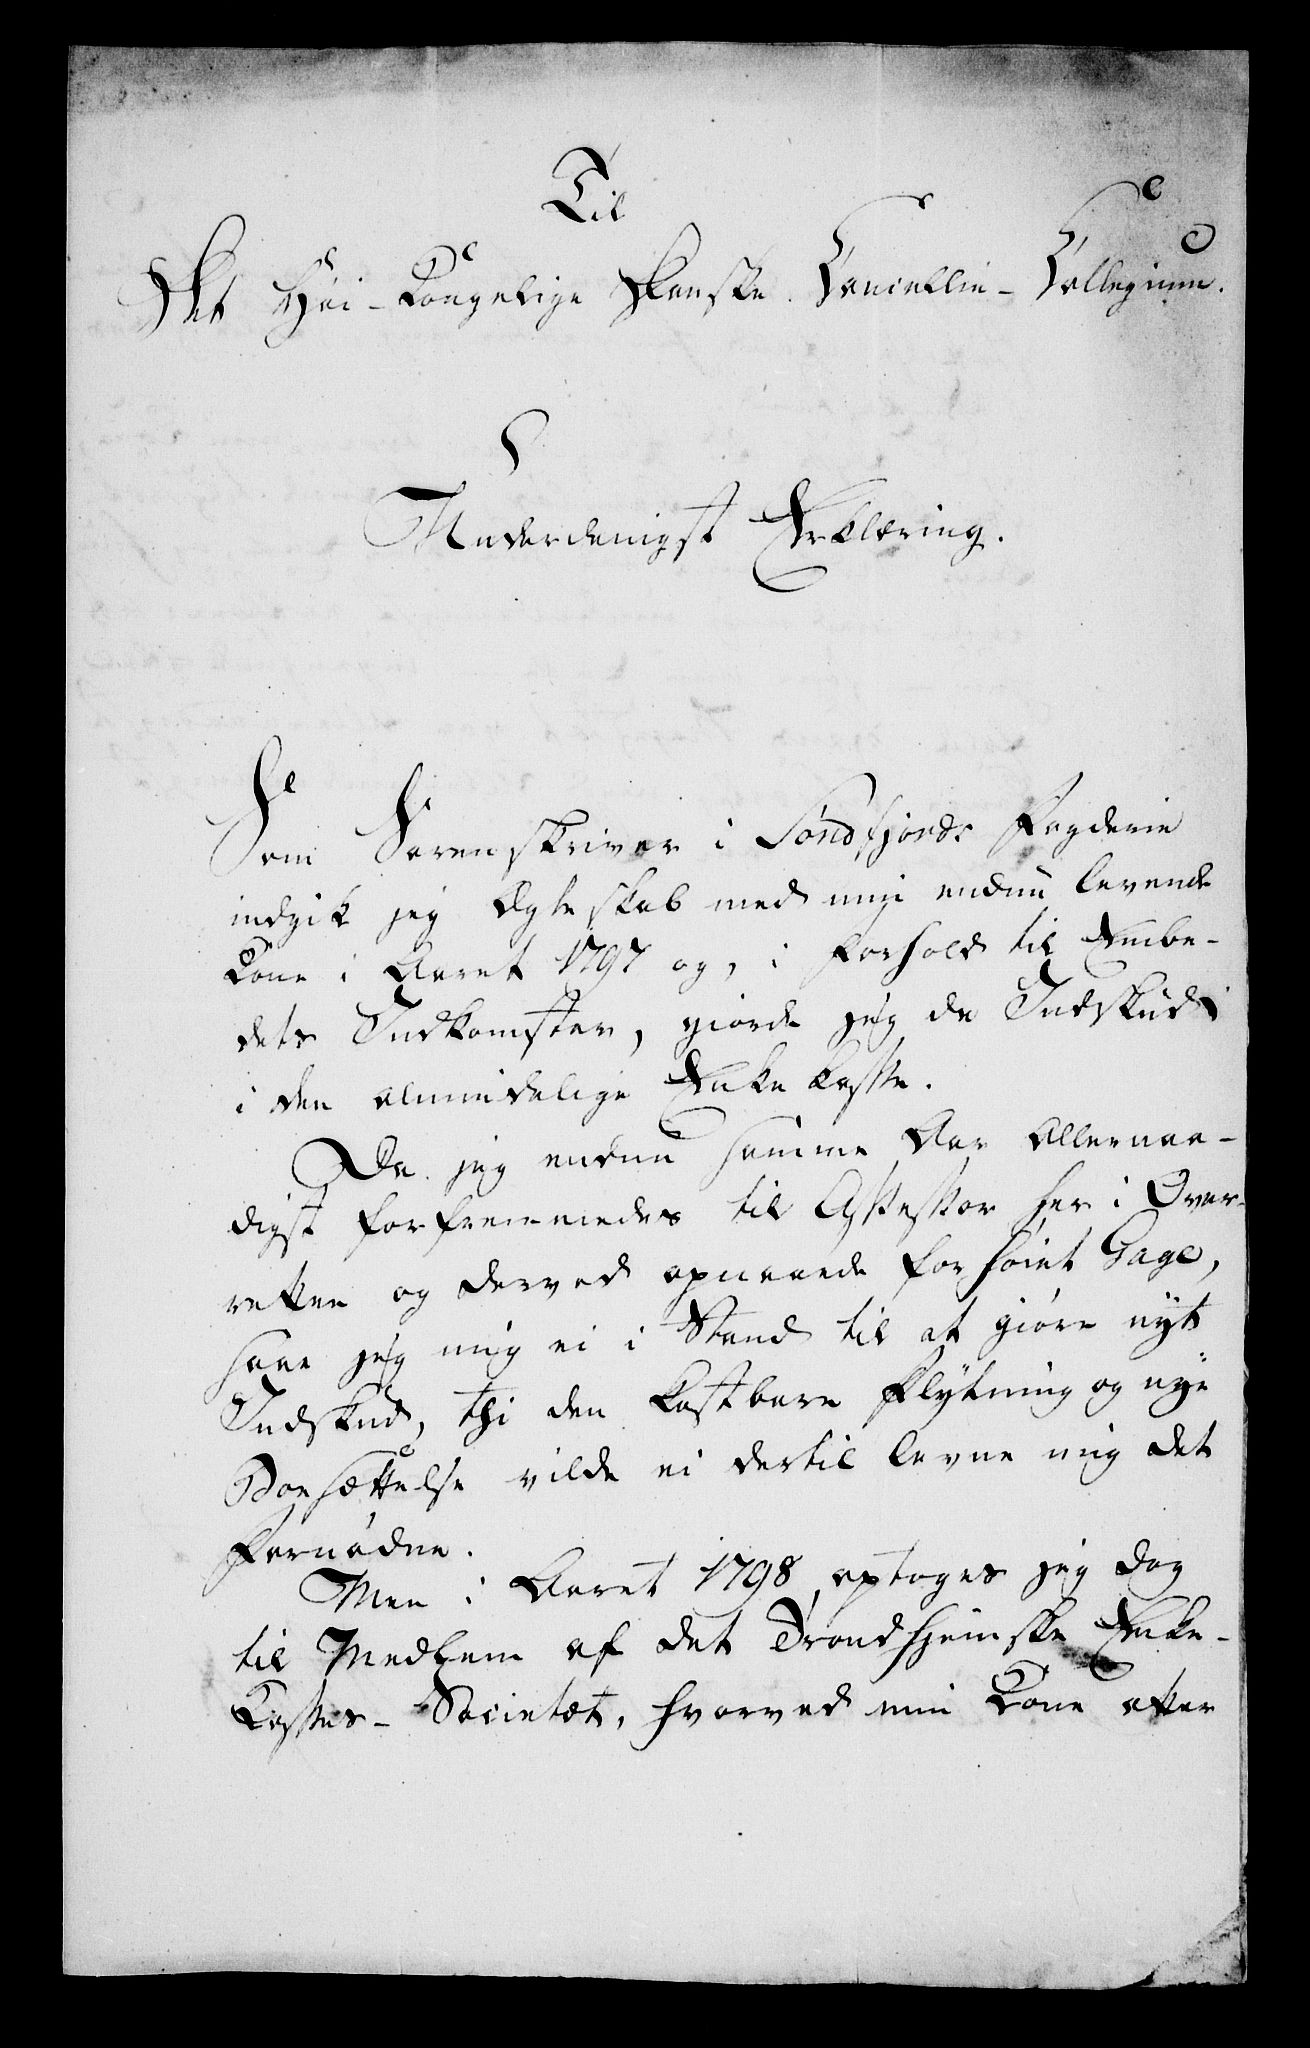 Til
Det Høi-Kongelige Danske Cancellie-Collegium.
Underdanigst Erklæring.
Som Sorenskriver i Søndfjords Fogderie
indgik jeg Ægteskab med min endnu levende
Kone i Aaret 1797 og, i Forhold til Embe-
dets Indkomster, giorde jeg da Indskud
i den almindelige Enke Casse.
Da jeg endnu samme Aar Allernaa-
digst forfremmedes til Assessor her i Over-
retten og derved opnaaede forhøiet Gage,
saae jeg mig ei i Stand til at giøre nyt
Indskud, thi den kostbare Flytning og nye
Boesættelse vilde ei dertil levne mig det
Fornødne.
Men i Aaret 1798, optoges jeg dog
til Medlem af det Trondhjemske Enke-
Casses-Societæt, hvorved min Kone efter